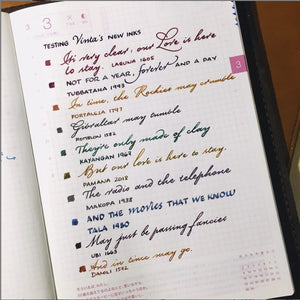 3
TESTING Vinta's NEW INKS
It's very clear, our Love is here
to stay. LAGUNA 1605
NOT FOR A YEAR, forever AND A DAY
TUBBATAHA 1993
In time, the Rockies may crumble
FORTALEZA 1747
Gibraltar may tumble
ROMBLON 1582
They're only made of clay
KAYANGAN 1967
But our love is here to stay.
PAMANA 2018
The radio and the telephone
MAKOPA 1938
AND THE MOVIES THAT WE KNOW
TALA 1980
May just be passing fancies
UBI 1663
And in time may go.
3